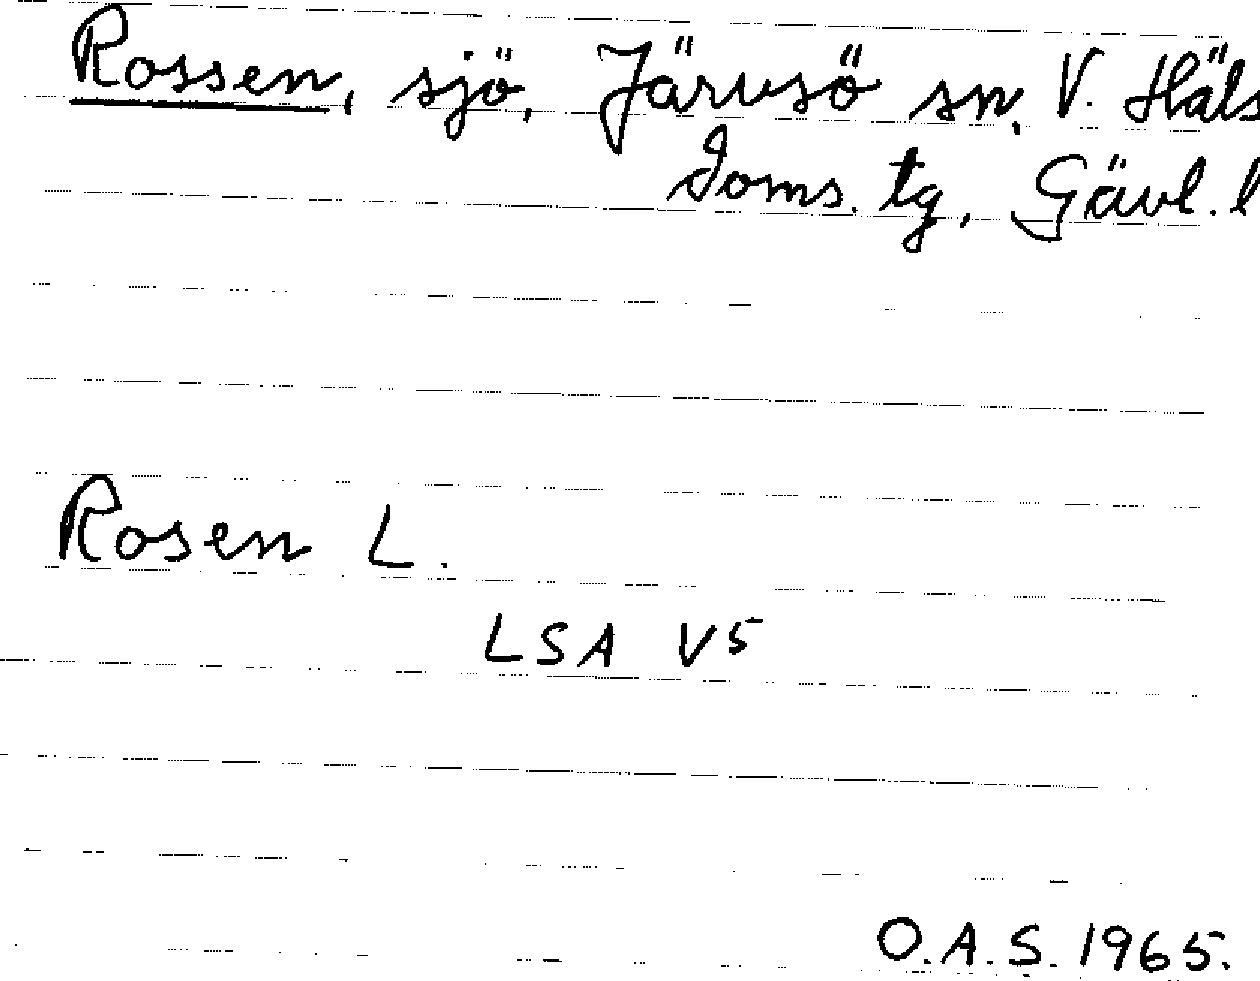 Rossen, sjö, Järvsö sn, V. Häls
Doms. tg, Gävl. l
Rosen L.
LSA V5
O.A.S. 1965.